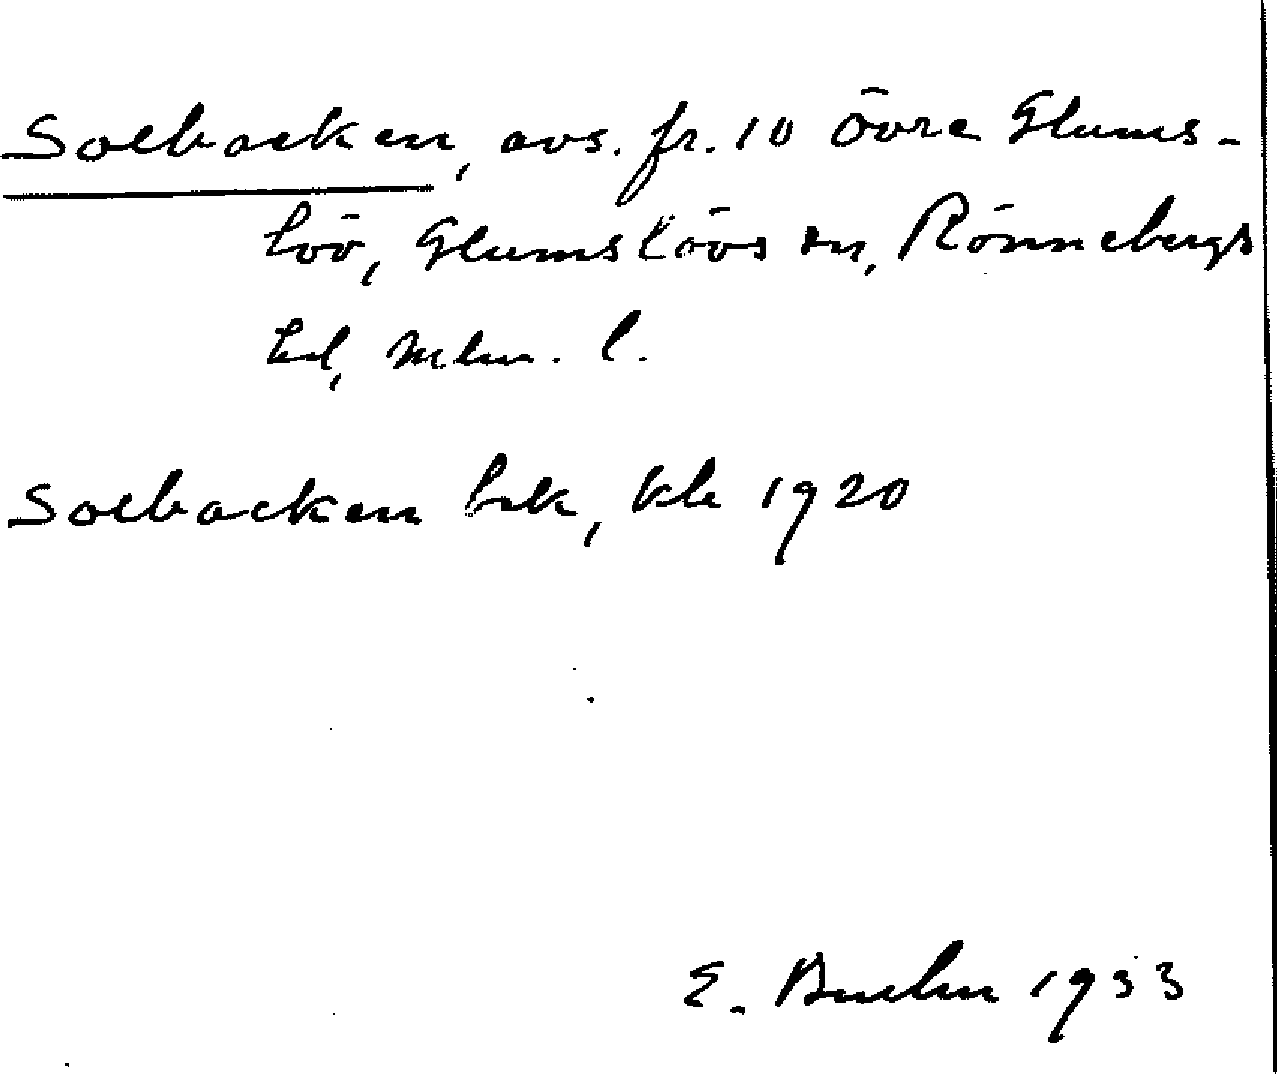 Solbacken, avs. fr. 10 Övre Glums-
löv, Glumslövs sn, Rönnebergs
hd, Mlm. l.
Solbacken hsk, kb 1920
E. 1933